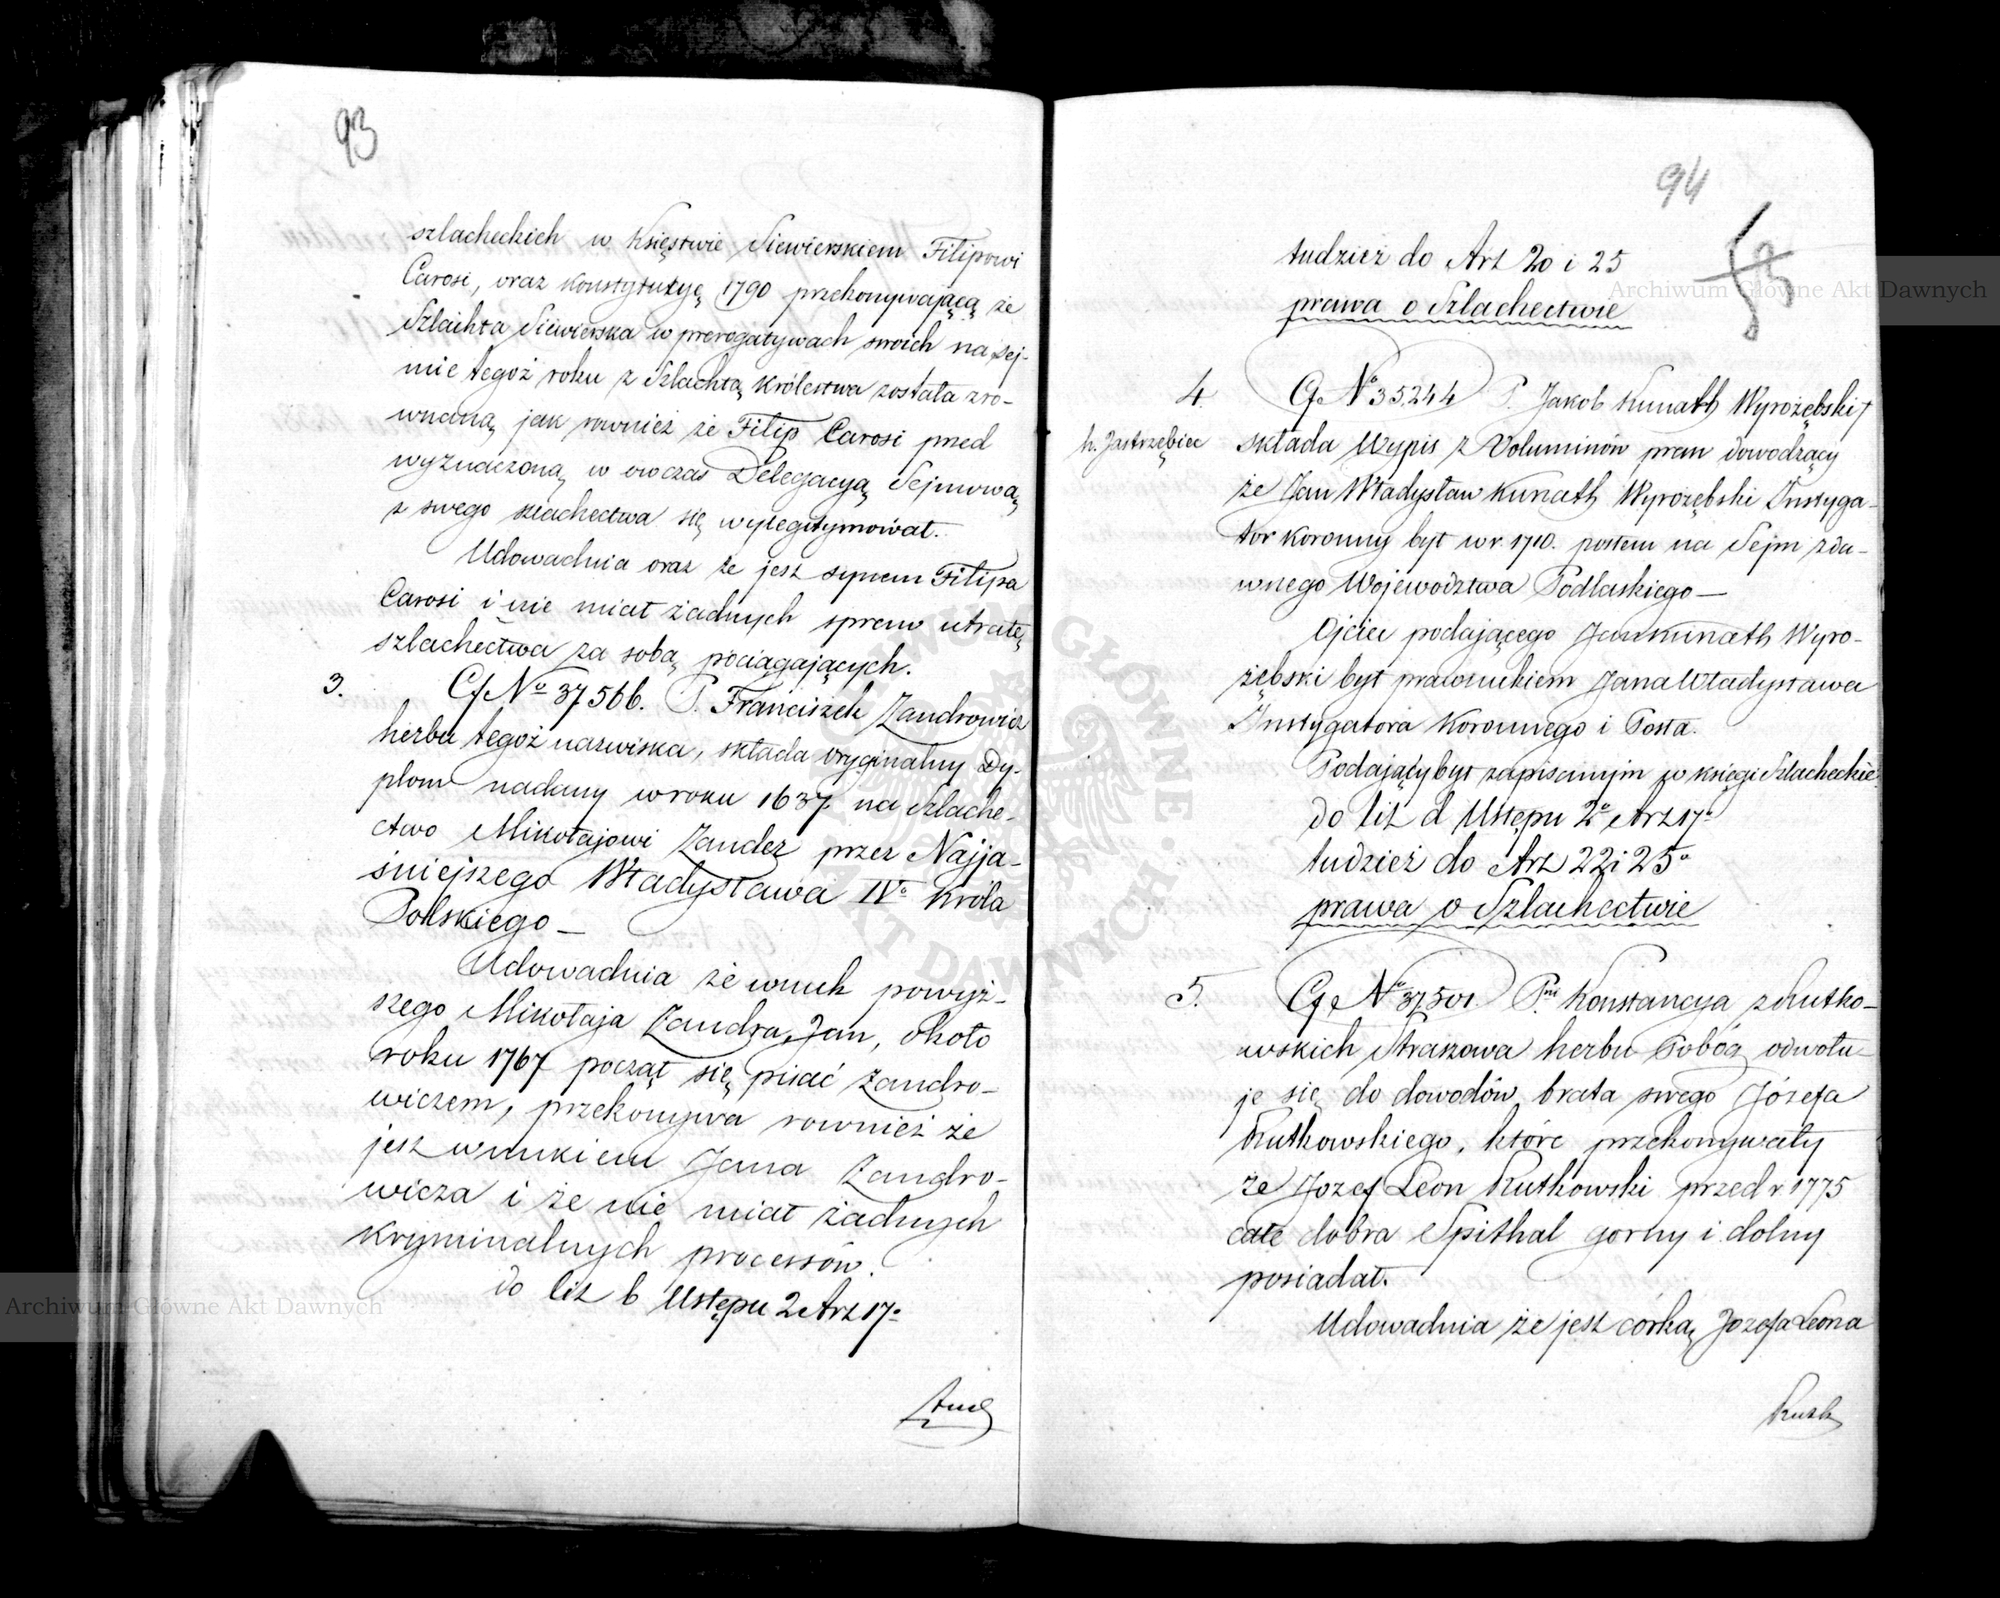 93
szlacheckich w Księstwie Siewierskiem Filipowi
Carosi, oraz Konstytucyę 1790 przekonywającą że
Szlachta Siewierska w prerogatywach swoich na sej-
mie tegoż roku z Szlachtą Królestwa została zro-
wnaną, jak rownież że Filip Carosi przed
wyznaczoną w owczas Delegacyą Sejmową
z swego szlachectwa się wylegitymował.
Udowadnia oraz że jest synem Filipa
Carosi i nie miał żadnych spraw utratę
szlachectwa za sobą pociągających.
3. Cf No 37566. P. Franciszek Zandrowicz
herbu tegoż nazwiska, składa oryginalny Dy-
plom nadany w roku 1637 na Szlache-
ctwo Mikołajowi Zander przez Najja-
śniejszego Władysława IVo Króla
Polskiego –
Udowadnia że wnuk powyż-
szego Mikołaja Zandra, Jan, około
roku 1767 począł się pisać Zandro-
wiczem, przekonywa rownież że
jest wnukiem Jana Zandro-
wicza i że nie miał żadnych
kryminalnych processów.
do lit b Ustępu 2 Art 17o
94
tudzież do Art 20 i 25
prawa o Szlachectwie
4. Cf No 35.244 P. Jakob Kunath Wyrożębski
h. Jastrzębiec
składa Wypis z Voluminów praw dowodzący
że Jan Władysław Kunath Wyrozębski Instyga-
tor Koronny był w r. 1710. posłem na Sejm z da-
wnego Województwa Podlaskiego –
Ojciec podającego Jan Kunath Wyro-
żębski był prawnukiem Jana Władysława
Instygatora Koronnego i Posła.
Podający był zapisanym w księgi Szlacheckie
do lit d Ustępu 2o Art 17o
tudzież do Art 22 i 25o
prawa o Szlachectwie
5. Cf No 37501. Pni Konstancya z Rutko-
wskich Straszowa herbu Pobóg odwołu-
je się do dowodów brata swego Józefa
Rutkowskiego, które przekonywały
że Jozef Leon Rutkowski przed r 1775
całe dobra Spithal gorny i dolny
posiadał.
Udowadnia że jest córką Jozefa Leona
Rutk
Archiwum Główne Akt Dawnych
Archiwum Główne Akt Dawnych
ARCHIWUM GŁÓWNE AKT DAWNYCH